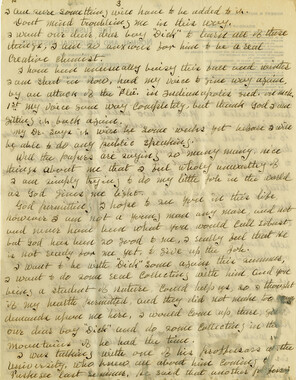 3
I am sure something nice have to be added to it.
Don't mind troubling me in this way.
I want our dear boy "Dick" to have all of these
things, I am so anxious for him to be a real
Creative Chemist.
I have been unusually busy this last week
I am shut in now, had my voice to give way again
by an attack of the Flu in Indianapolis Ind.
1st my voice gone way completely, but thank God I am
getting it back again.
My Dr. says it will be some weeks yet before I will
be able to do any public speaking.
Well the papers are saying so many many nice
things about me that I feel wholly unworthy of
I am simply trying to do my little job in the world
as God gives me light.
God permitting I hope to see you in this life,
however I am not a young man any more and am
and never have been what you would call robust,
but God has been so good to me, I really feel that He
is not ready for me yet, to give up the job.
I want to be with Dick again this summer,
I want to do some real collecting with him and you
being a student of nature could help us, so I thought
if my health permitted and they did not make too
demands upon me here, I would come up there, get
our dear boy Dick and do some collecting in the
mountains if he had the time.
I was talking with one of his professors at the
University, who heard me about him coming to
Purdue last summer, he said that another